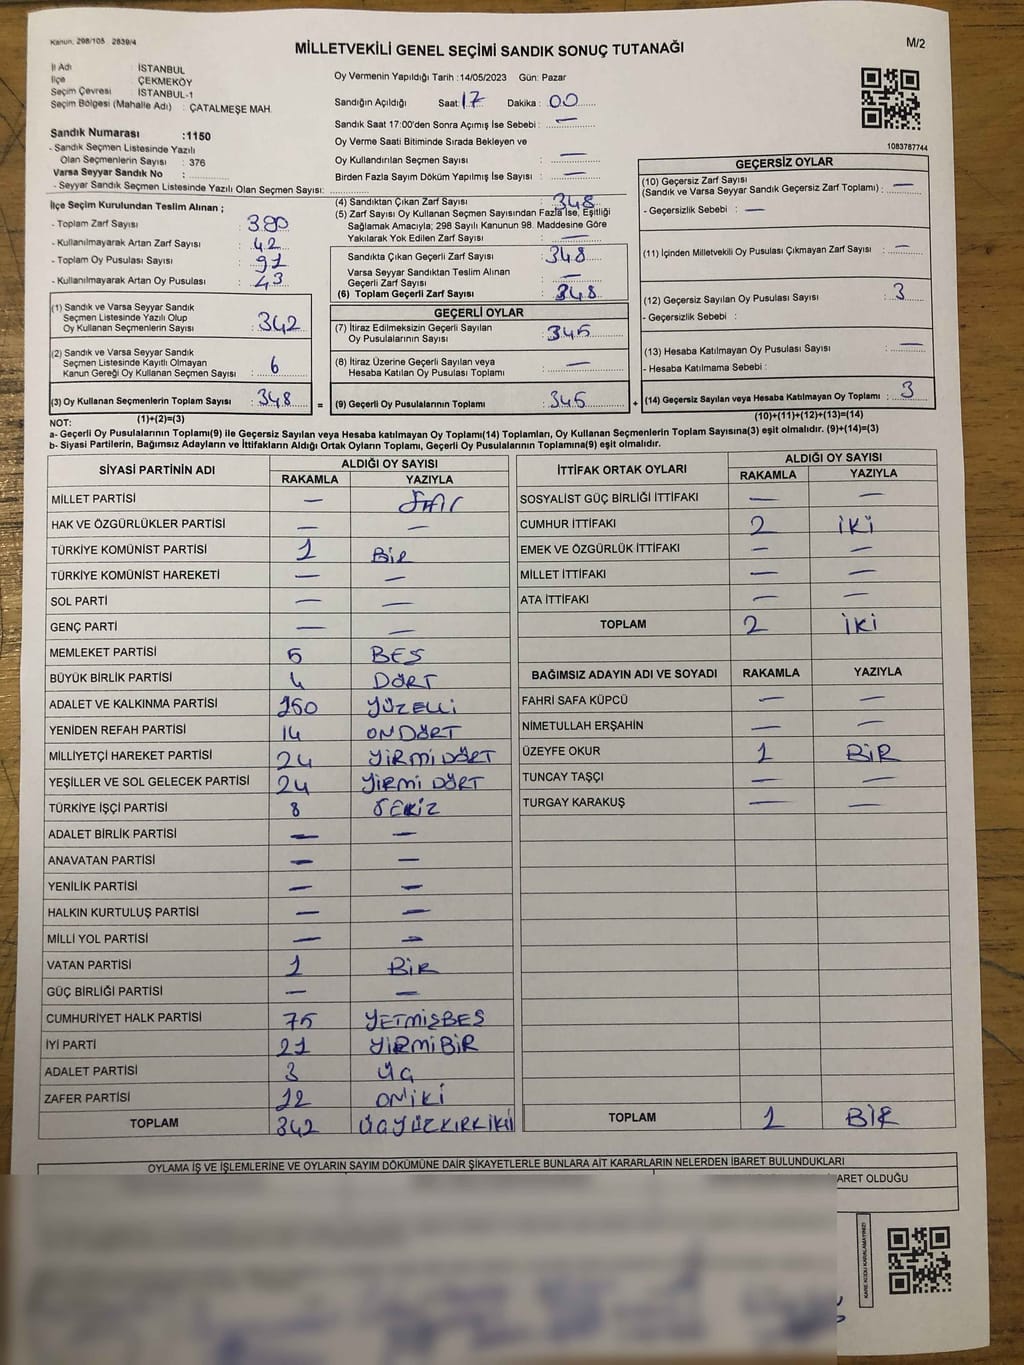 Kanun, 298/105 2839/4
MİLLETVEKİLİ GENEL SEÇİMİ SANDIK SONUÇ TUTANAĞI
M/2
İl Adı : İSTANBUL
İlçe : ÇEKMEKÖY
Seçim Çevresi : İSTANBUL-1
Seçim Bölgesi (Mahalle Adı) : ÇATALMEŞE MAH.
Sandık Numarası :1150
- Sandık Seçmen Listesinde Yazılı
Olan Seçmenlerin Sayısı : 376
Varsa Seyyar Sandık No :
- Seyyar Sandık Seçmen Listesinde Yazılı Olan Seçmen Sayısı:
Oy Vermenin Yapıldığı Tarih :14/05/2023 Gün: Pazar
Sandığın Açıldığı Saat: 17 Dakika : 00
Sandık Saat 17:00'den Sonra Açımış İse Sebebi : —
Oy Verme Saati Bitiminde Sırada Bekleyen ve
Oy Kullandırılan Seçmen Sayısı : —
Birden Fazla Sayım Döküm Yapılmış İse Sayısı : —
1083787744
İlçe Seçim Kurulundan Teslim Alınan ;
- Toplam Zarf Sayısı : 380
- Kullanılmayarak Artan Zarf Sayısı : 42
- Toplam Oy Pusulası Sayısı : 91
- Kullanılmayarak Artan Oy Pusulası : 43
(1) Sandık ve Varsa Seyyar Sandık
Seçmen Listesinde Yazılı Olup
Oy Kullanan Seçmenlerin Sayısı : 342
(2) Sandık ve Varsa Seyyar Sandık
Seçmen Listesinde Kayıtlı Olmayan
Kanun Gereği Oy Kullanan Seçmen Sayısı : 6
(3) Oy Kullanan Seçmenlerin Toplam Sayısı : 348 =
(4) Sandıktan Çıkan Zarf Sayısı : 348
(5) Zarf Sayısı Oy Kullanan Seçmen Sayısından Fazla İse, Eşitliği
Sağlamak Amacıyla; 298 Sayılı Kanunun 98. Maddesine Göre
Yakılarak Yok Edilen Zarf Sayısı : —
Sandıkta Çıkan Geçerli Zarf Sayısı : 348
Varsa Seyyar Sandıktan Teslim Alınan
Geçerli Zarf Sayısı : —
(6) Toplam Geçerli Zarf Sayısı : 348
GEÇERLİ OYLAR
(7) İtiraz Edilmeksizin Geçerli Sayılan
Oy Pusulalarının Sayısı : 345
(8) İtiraz Üzerine Geçerli Sayılan veya
Hesaba Katılan Oy Pusulası Toplamı : —
(9) Geçerli Oy Pusulalarının Toplamı : 345 +
GEÇERSİZ OYLAR
(10) Geçersiz Zarf Sayısı
(Sandık ve Varsa Seyyar Sandık Geçersiz Zarf Toplamı) : —
- Geçersizlik Sebebi : —
(11) İçinden Milletvekili Oy Pusulası Çıkmayan Zarf Sayısı : —
(12) Geçersiz Sayılan Oy Pusulası Sayısı : 3
- Geçersizlik Sebebi :
(13) Hesaba Katılmayan Oy Pusulası Sayısı : —
- Hesaba Katılmama Sebebi :
(14) Geçersiz Sayılan veya Hesaba Katılmayan Oy Toplamı : 3
NOT: (1)+(2)=(3) (10)+(11)+(12)+(13)=(14)
a- Geçerli Oy Pusulalarının Toplamı(9) ile Geçersiz Sayılan veya Hesaba katılmayan Oy Toplamı(14) Toplamları, Oy Kullanan Seçmenlerin Toplam Sayısına(3) eşit olmalıdır. (9)+(14)=(3)
b- Siyasi Partilerin, Bağımsız Adayların ve İttifakların Aldığı Ortak Oyların Toplamı, Geçerli Oy Pusulalarının Toplamına(9) eşit olmalıdır.
SİYASİ PARTİNİN ADI ALDIĞI OY SAYISI
RAKAMLA YAZIYLA
MİLLET PARTİSİ —
HAK VE ÖZGÜRLÜKLER PARTİSİ — —
TÜRKİYE KOMÜNİST PARTİSİ 1 BİR
TÜRKİYE KOMÜNİST HAREKETİ — —
SOL PARTİ — —
GENÇ PARTİ — —
MEMLEKET PARTİSİ 5 BEŞ
BÜYÜK BİRLİK PARTİSİ 4 DÖRT
ADALET VE KALKINMA PARTİSİ 150 YÜZELLİ
YENİDEN REFAH PARTİSİ 14 ONDÖRT
MİLLİYETÇİ HAREKET PARTİSİ 24 YİRMİ DÖRT
YEŞİLLER VE SOL GELECEK PARTİSİ 24 YİRMİ DÖRT
TÜRKİYE İŞÇİ PARTİSİ 8 SEKİZ
ADALET BİRLİK PARTİSİ — —
ANAVATAN PARTİSİ — —
YENİLİK PARTİSİ — —
HALKIN KURTULUŞ PARTİSİ — —
MİLLİ YOL PARTİSİ — —
VATAN PARTİSİ 1 BİR
GÜÇ BİRLİĞİ PARTİSİ — —
CUMHURİYET HALK PARTİSİ 75 YETMİŞBEŞ
İYİ PARTİ 21 YİRMİBİR
ADALET PARTİSİ 3 ÜÇ
ZAFER PARTİSİ 12 ONİKİ
TOPLAM 342 ÜÇYÜZKIRKİKİ
İTTİFAK ORTAK OYLARI ALDIĞI OY SAYISI
RAKAMLA YAZIYLA
SOSYALİST GÜÇ BİRLİĞİ İTTİFAKI — —
CUMHUR İTTİFAKI 2 İKİ
EMEK VE ÖZGÜRLÜK İTTİFAKI — —
MİLLET İTTİFAKI — —
ATA İTTİFAKI — —
TOPLAM 2 İKİ
BAĞIMSIZ ADAYIN ADI VE SOYADI RAKAMLA YAZIYLA
FAHRİ SAFA KÜPCÜ — —
NİMETULLAH ERŞAHİN — —
ÜZEYFE OKUR 1 BİR
TUNCAY TAŞÇI — —
TURGAY KARAKUŞ — —
TOPLAM 1 BİR
OYLAMA İŞ VE İŞLEMLERİNE VE OYLARIN SAYIM DÖKÜMÜNE DAİR ŞİKAYETLERLE BUNLARA AİT KARARLARIN NELERDEN İBARET BULUNDUKLARI
ARET OLDUĞU
KARE KODU KARALAMAYINIZ!